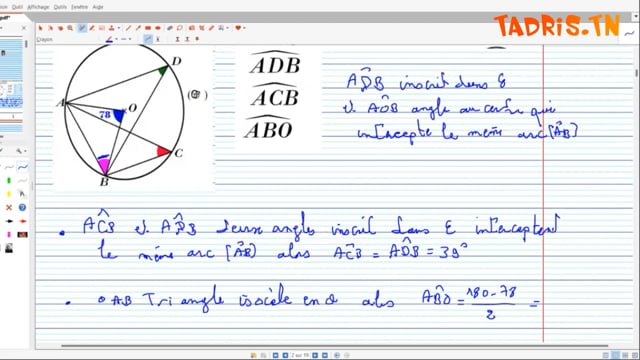 TADRIS.TN
Affichage Fenêtre Aide
Crayon
D
A
O
78
C
B
ADB
ACB
ABO
ADB inscrit dans ξ
et AOB angle au centre qui
intercepte le même arc [AB]
• ACB et ADB deux angles inscrit dans ξ interceptent
le même arc [AB] alors ACB = ADB = 39°
• OAB Triangle isocèle en O alors ABO = 180-78 / 2 =